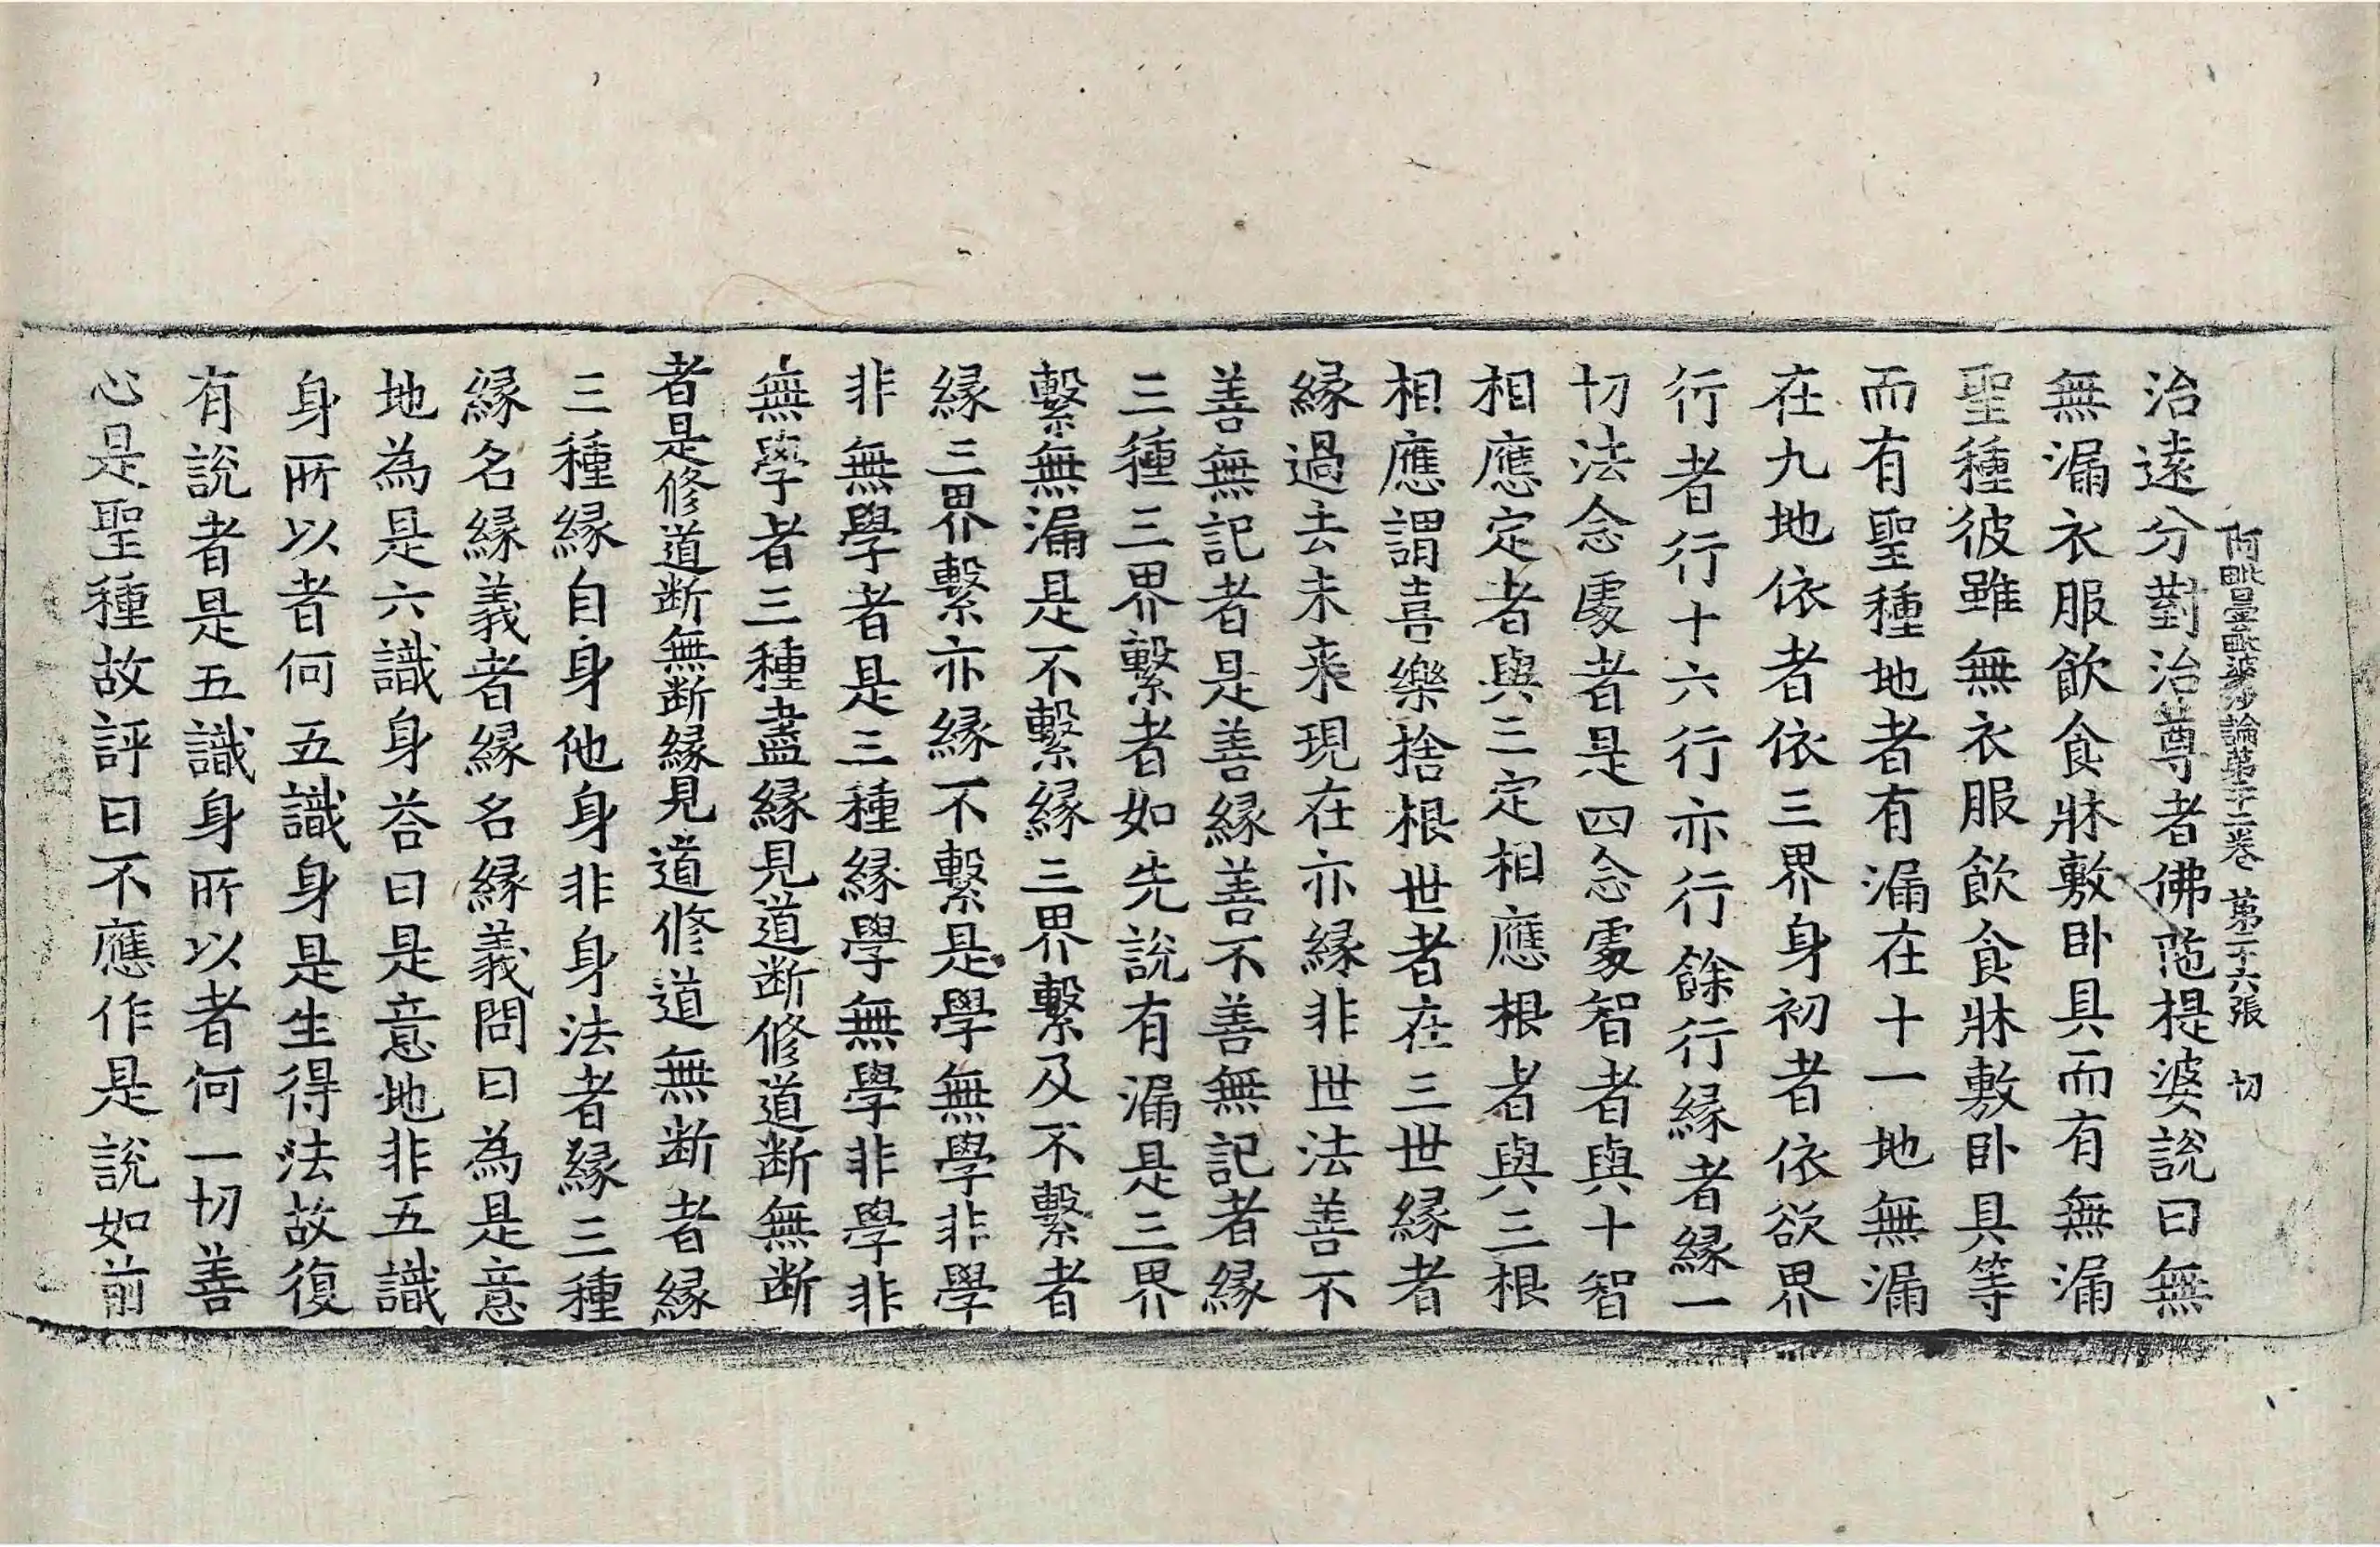 阿毗曇毗婆沙論第二十二卷　第二十六張　切
治遠分對治尊者佛陁提婆說曰無
無漏衣服飲食牀敷卧具而有無漏
聖種彼雖無衣服飲食牀敷卧具等
而有聖種地者有漏在十一地無漏
在九地依者依三界身初者依欲界
行者行十六行亦行餘行緣者緣一
切法念處者是四念處智者與十智
相應定者與三定相應根者與三根
相應謂喜樂捨根世者在三世緣者
緣過去未來現在亦緣非世法善不
善無記者是善緣善不善無記者緣
三種三界繫者如先說有漏是三界
繫無漏是不繫緣三界繫及不繫者
緣三界繫亦緣不繫是學無學非學
非無學者是三種緣學無學非學非
無學者三種盡緣見道断修道断無断
者是修道断無断緣見道修道無断者緣
三種緣自身他身非身法者緣三種
緣名緣義者緣名緣義問曰為是意
地為是六識身荅曰是意地非五識
身所以者何五識身是生得法故復
有說者是五識身所以者何一切善
心是聖種故評曰不應作是說如前